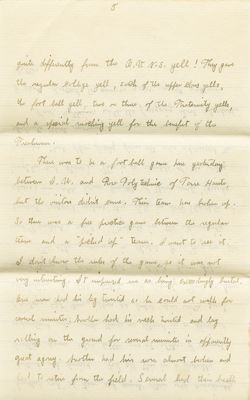 5
quite differently from the yell! They gave
the regular College yell, each of the upper class yells,
the foot ball yell, two or three of the Fraternity yells,
and a special yell for the benefit of the
Freshmen.
There was to be a foot ball game here yesterday
between I. U. and Rose Polytechnic of Terre Haute,
but the visitors didn't come. Their team was broken up.
So there was a free practice game between the regular
team and a "picked up" team. I went to see it.
I don't know the rules of the game, so it was not
very interesting. It impressed me as being exceedingly brutal.
One man had his leg twisted so he could not walk for
several minutes, another had his neck twisted and lay
rolling on the ground for several minutes in apparently
great agony, another had his arm almost broken and
had to retire from the field. Several had their heads